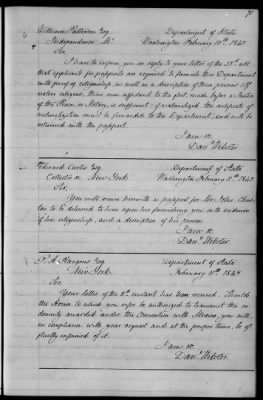 William Pattison Esq. Department of State
Independence Mo. Washington February 10th 1842
Sir,
I have to inform you in reply to your letter of the 23d. ulto.
that applicants for passports are required to furnish this Department
with proof of citizenship, as well as a description of their persons. If
native citizens, their own affidavit to the fact, made before a Justice
of the Peace or Notary, is sufficient; if naturalized, the certificate of
naturalization must be forwarded to the Department, and will be
returned with the passport.
I am &c.
Danl. Webster.
Edward Curtis Esq. Department of State
Collector &c. New York Washington February 11th. 1842
Sir,
You will receive herewith a passport for Mr. John
to be delivered to him upon his furnishing you with evidence
of his citizenship, and a description of his person.
I am &c.
Danl. Webster.
P. A Hargous Esq. Department of State
New York. February 11th. 1842
Sir,
Your letter of the 8th. instant has been received. Should
the House to which you refer be authorized to transmit the in-
demnity awarded under the Convention with Mexico, you will,
in compliance with your request and at the proper time, be of-
ficially informed of it.
I am &c.
Danl. Webster.